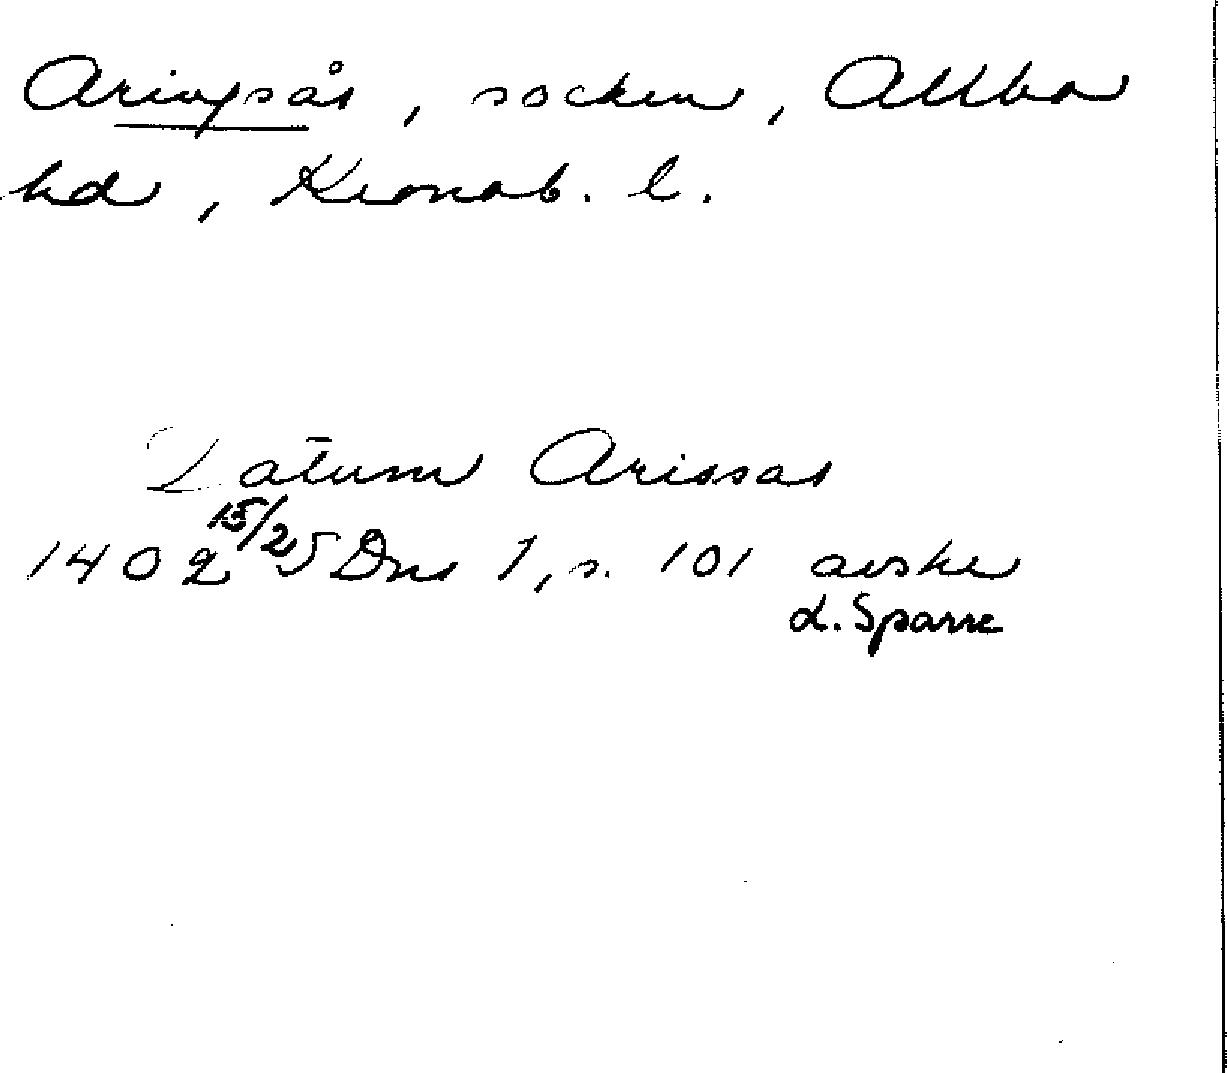 Aringsås, socken, Allbo
hd, Kronob. l.
Datum Arissas
1402 15/2 5 Dns 1, s. 101 avskr
L. Sparre